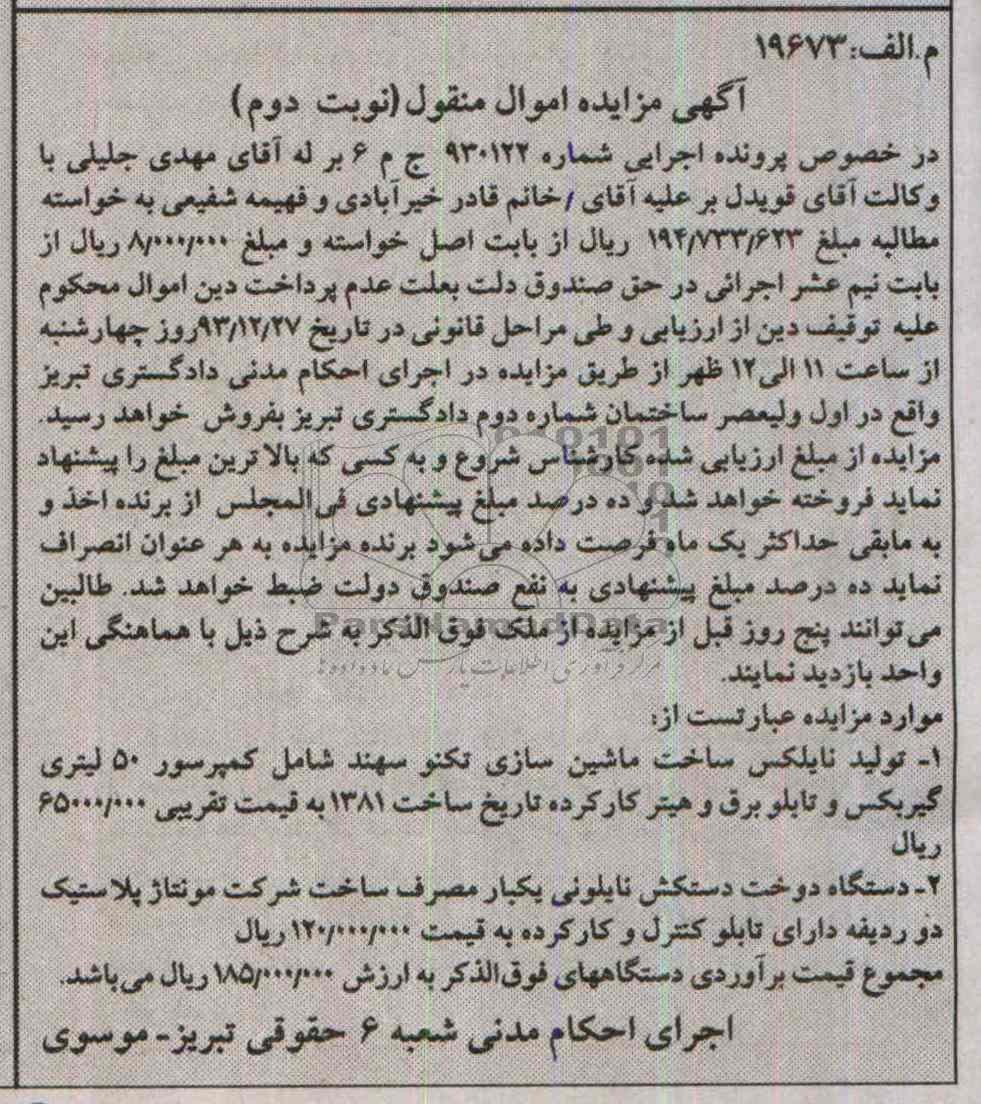 م.الف: ۱۹۶۷۳
آگهی مزایده اموال منقول (نوبت دوم)
در خصوص پرونده اجرایی شماره ۹۳۰۱۲۲ ج م ۶ بر له آقای مهدی جلیلی با
وکالت آقای قویدل بر علیه آقای / خانم قادر خیرآبادی و فهیمه شفیعی به خواسته
مطالبه مبلغ ۱۹۴/۷۳۳/۶۲۳ ریال از بابت اصل خواسته و مبلغ ۸/۰۰۰/۰۰۰ ریال از
بابت نیم عشر اجرائی در حق صندوق دلت بعلت عدم پرداخت دین اموال محکوم
علیه توقیف دین از ارزیابی و طی مراحل قانونی در تاریخ ۹۳/۱۲/۲۷ روز چهارشنبه
از ساعت ۱۱ الی ۱۲ ظهر از طریق مزایده در اجرای احکام مدنی دادگستری تبریز
واقع در اول ولیعصر ساختمان شماره دوم دادگستری تبریز بفروش خواهد رسید.
مزایده از مبلغ ارزیابی شده کارشناس شروع و به کسی که بالا ترین مبلغ را پیشنهاد
نماید فروخته خواهد شد و ده درصد مبلغ پیشنهادی فی المجلس از برنده اخذ و
به مابقی حداکثر یک ماه فرصت داده می‌شود برنده مزایده به هر عنوان انصراف
نماید ده درصد مبلغ پیشنهادی به نفع صندوق دولت ضبط خواهد شد. طالبین
می‌توانند پنج روز قبل از مزایده از ملک فوق الذکر به شرح ذیل با هماهنگی این
واحد بازدید نمایند.
موارد مزایده عبارتست از:
۱- تولید نایلکس ساخت ماشین سازی تکنو سهند شامل کمپرسور ۵۰ لیتری
گیربکس و تابلو برق و هیتر کارکرده تاریخ ساخت ۱۳۸۱ به قیمت تقریبی ۶۵۰۰۰/۰۰۰
ریال
۲- دستگاه دوخت دستکش نایلونی یکبار مصرف ساخت شرکت مونتاژ پلاستیک
دو ردیفه دارای تابلو کنترل و کارکرده به قیمت ۱۲۰/۰۰۰/۰۰۰ ریال
مجموع قیمت برآوردی دستگاههای فوق‌الذکر به ارزش ۱۸۵/۰۰۰/۰۰۰ ریال می‌باشد.
اجرای احکام مدنی شعبه ۶ حقوقی تبریز - موسوی
ParsNamadData
مرکز فرآوری اطلاعات پارس نماد داده ها